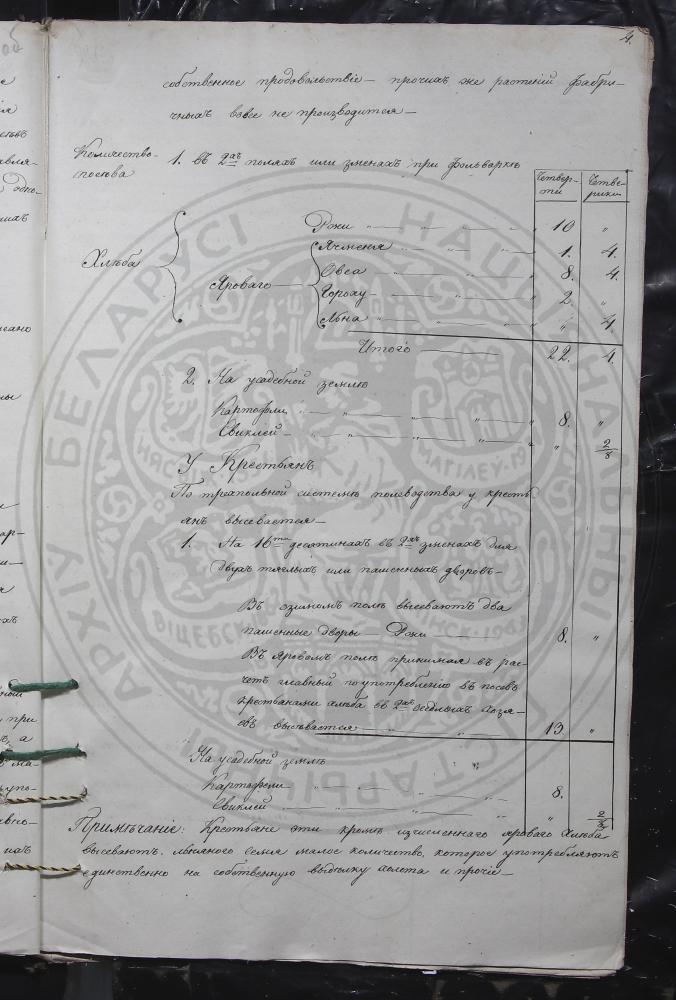 4.
собственное продовольствіе — прочихъ же растеній фабри-
чныхъ вовсе не производится —
Количество
посѣва
1. Въ 2хъ поляхъ или змѣнахъ при фольваркѣ
Четвер-
ти
Четве-
рики
Ржи — " — " — " 10 "
Хлѣба
Яроваго
Ячменя — " — " 1. 4.
Овса — " — " 8. 4.
Гороху — " — " 2 "
Льна " — " — " " 4
Итого 22. 4.
2. На усадебной землѣ
Картофли " — " — " 8. "
Свиклей — " — " — " " 2/8
У Крестьянъ
По трехпольной системѣ полеводства у кресть
янъ высевается —
1. На 16ти десятинахъ въ 2хъ змѣнахъ для
двухъ тяглыхъ или пашенныхъ дворовъ —
Въ озимомъ полѣ высеваютъ два
пашенные дворы — Ржи 8. "
Въ яровомъ полѣ принимая въ раз-
четъ главный по употребленію въ посевъ
крестьянами хлѣба въ 2хъ
евъ высѣвается — " — " 13 "
На усадебной землѣ
Картофели " — " — " 8.
Свиклей — " — " " 2/8
Примѣчаніе: Крестьяне эти кромѣ изчисленнаго яроваго хлѣба
высеваютъ льнянаго семя малое количество, которое употребляютъ
единственно на собственную выдѣлку полота и прочіе —